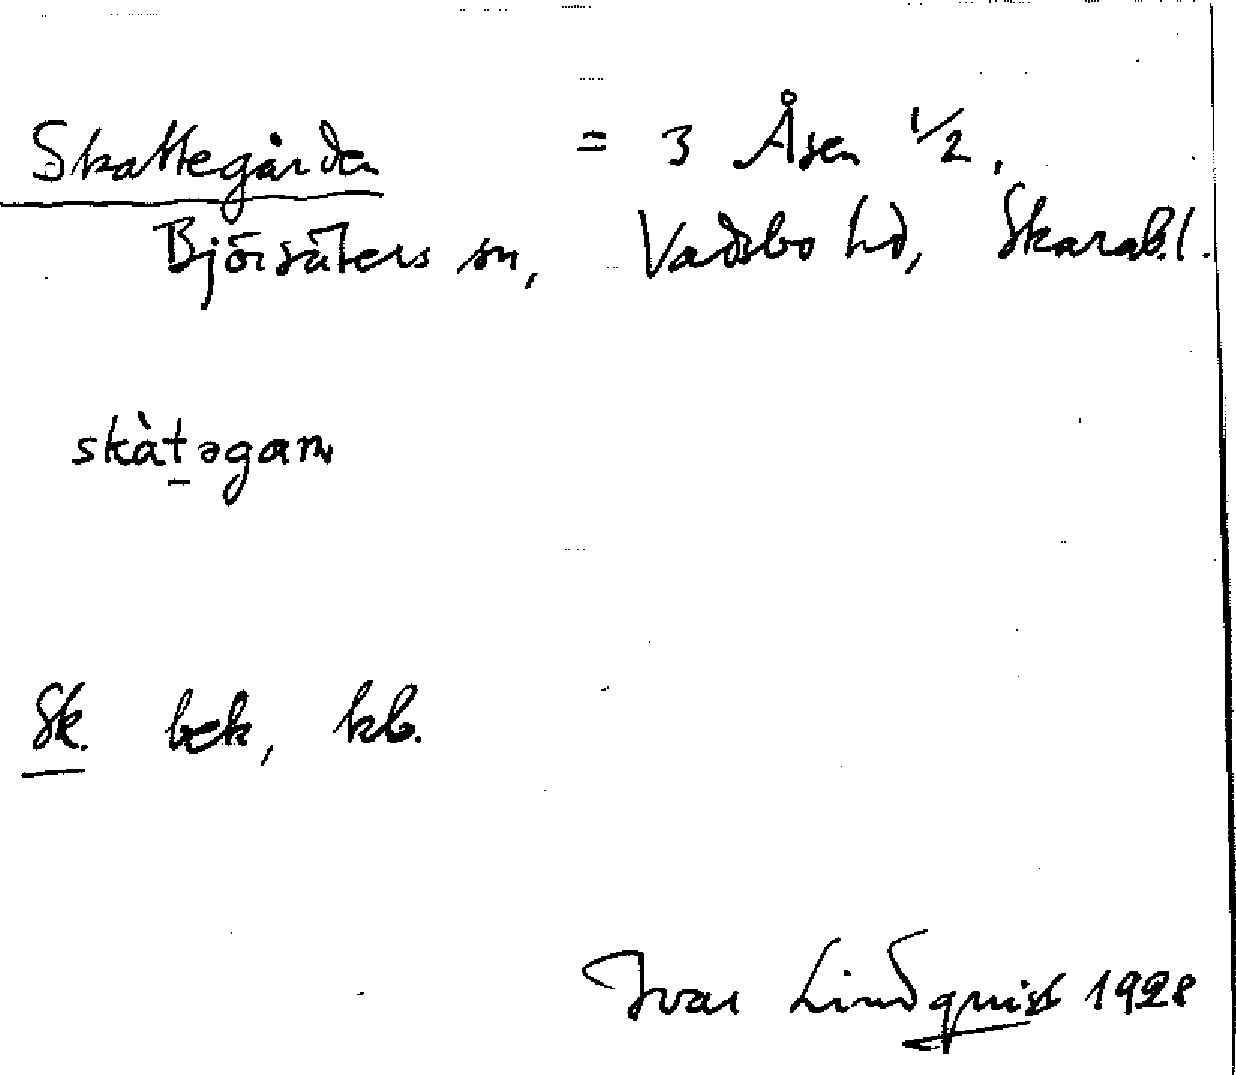 Skattegården = 3 Åsen 1/2,
Björsäters sn, Vadsbo hd, Skarab.l.
skàt̠əgan
Sk. bek, kb.
Ivar Lindquist 1928